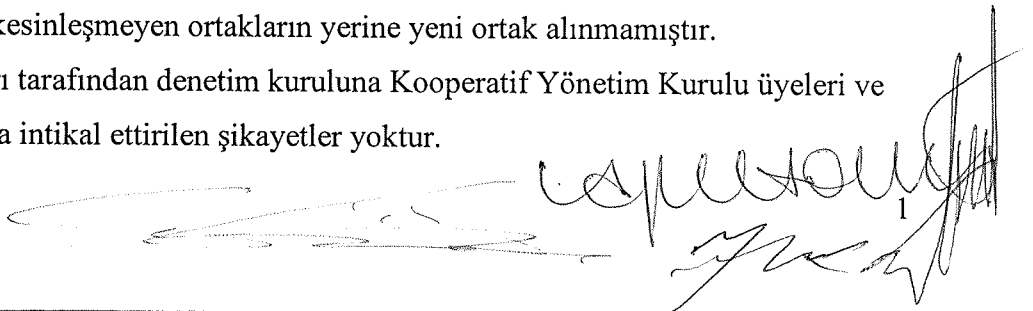 kesinleşmeyen ortakların yerine yeni ortak alınmamıştır.
ı tarafından denetim kuruluna Kooperatif Yönetim Kurulu üyeleri ve
a intikal ettirilen şikayetler yoktur.
1